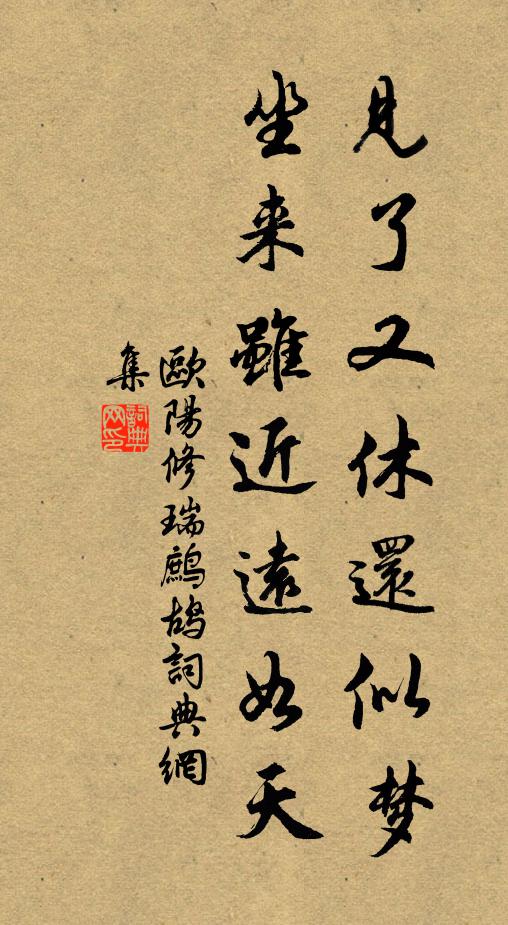 见了又休還似梦
坐来雖近遠如天
歐陽修瑞鷓鴣詞典網
集
詞典
网印